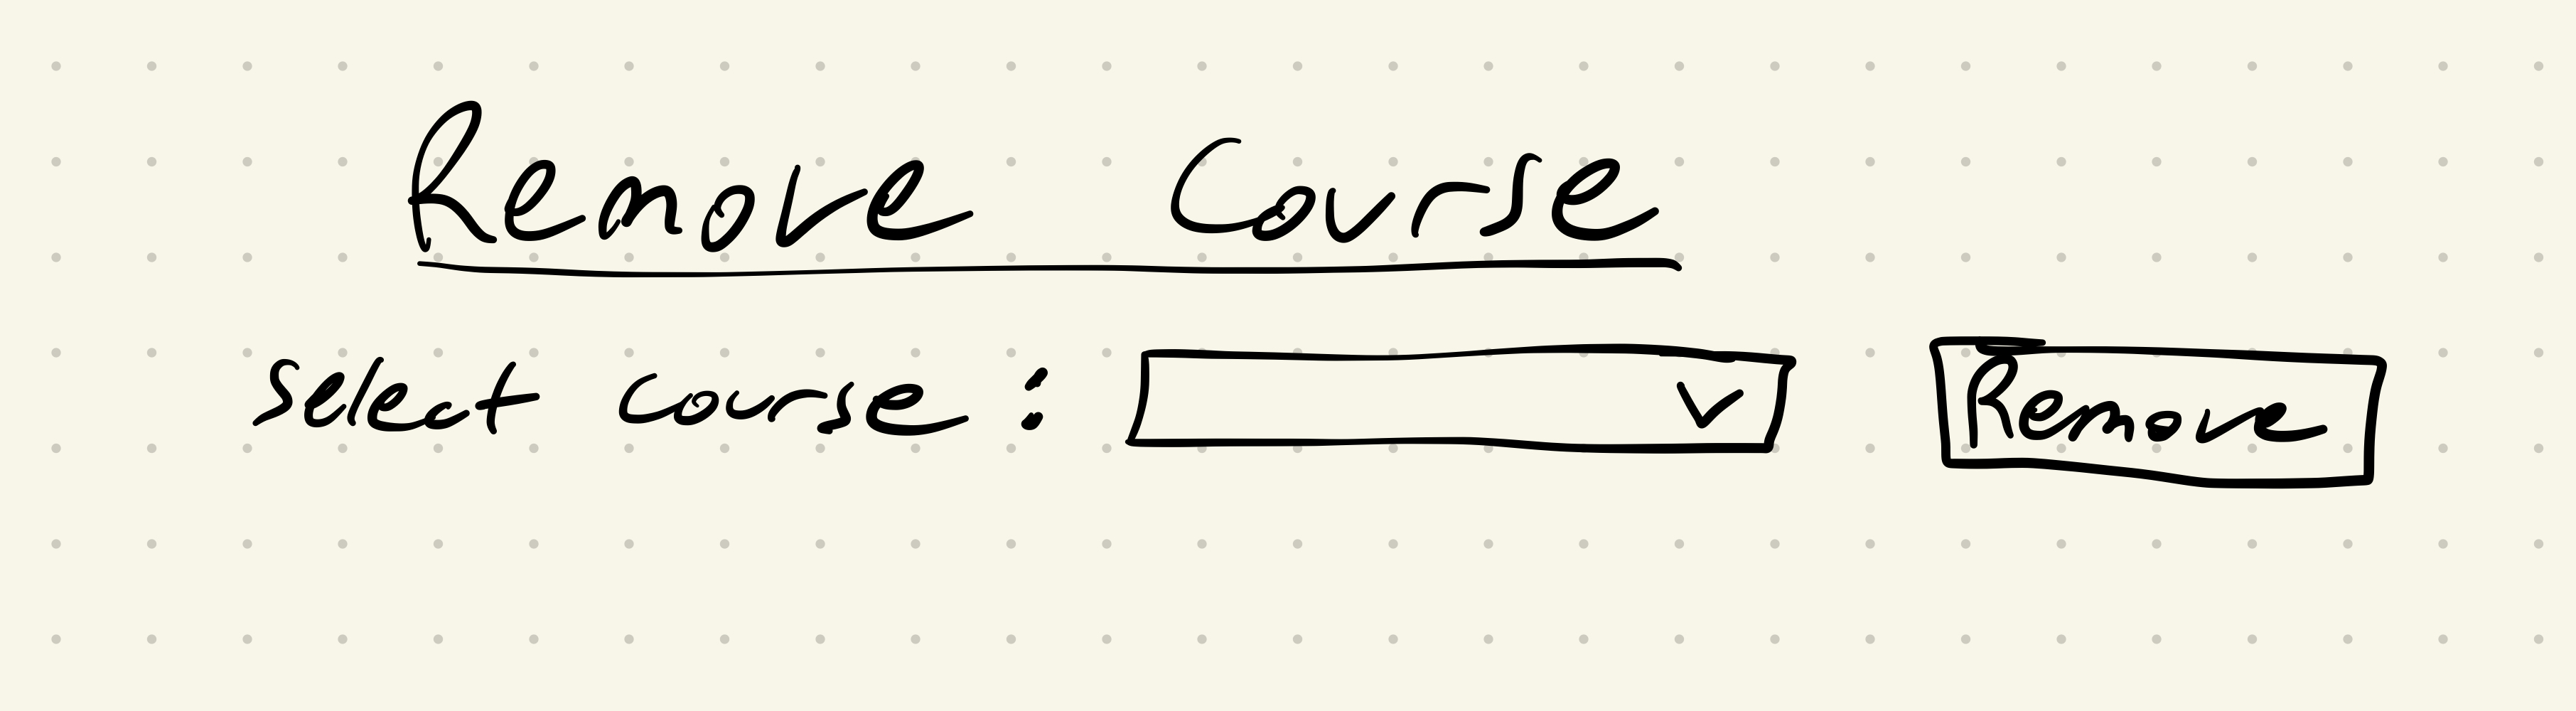 Remove Course
Select course : Remove